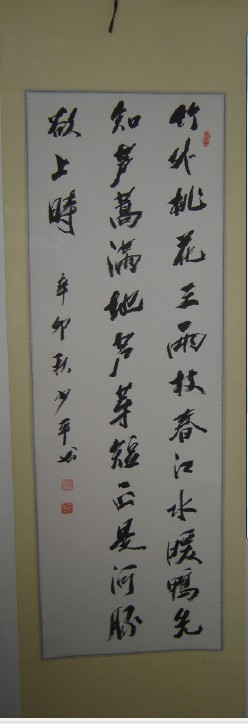 竹外桃花三兩枝春江水暖鴨先
知蒌蒿滿地芦芽短正是河豚
欲上時
辛卯秋少平书